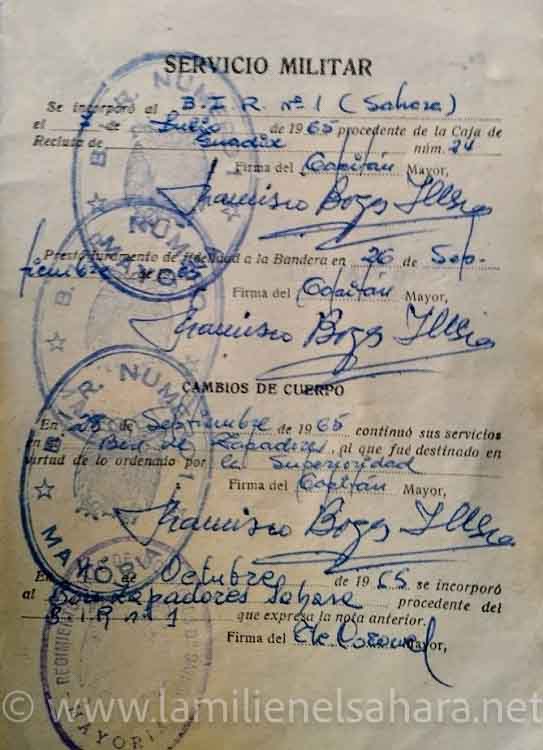 SERVICIO MILITAR
Se incorporó al B.I.R. nº 1 (Sahara)
el 7 de Julio de 1965 procedente de la Caja de
Recluta de Guadix núm. 24
Firma del Capitán Mayor,
Francisco
Prestó juramento de fidelidad a la Bandera en 26 de Sep-
tiembre de 65
Firma del Capitán Mayor,
Francisco
CAMBIOS DE CUERPO
En 28 de Septiembre de 1965 continuó sus servicios
en Bon de Zapadores, al que fué destinado en
virtud de lo ordenado por la Superioridad
Firma del Capitán Mayor,
Francisco
En de Octubre de 1965 se incorporó
al Bon Zapadores Sahara procedente del
B.I.R. n 1 que expresa la nota anterior.
Firma del Tte Coronel Mayor,
B. I. R. NUMERO 1
MAYORIA
B. I. R. NUMERO 1
MAYORIA
B. I. R. NUMERO 1
MAYORIA
MAYORIA
© www.lamilienelsahara.net